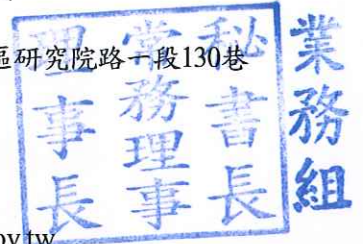 區研究院路一段130巷
秘書長
常務理事
理事長
業務組
ov.tw